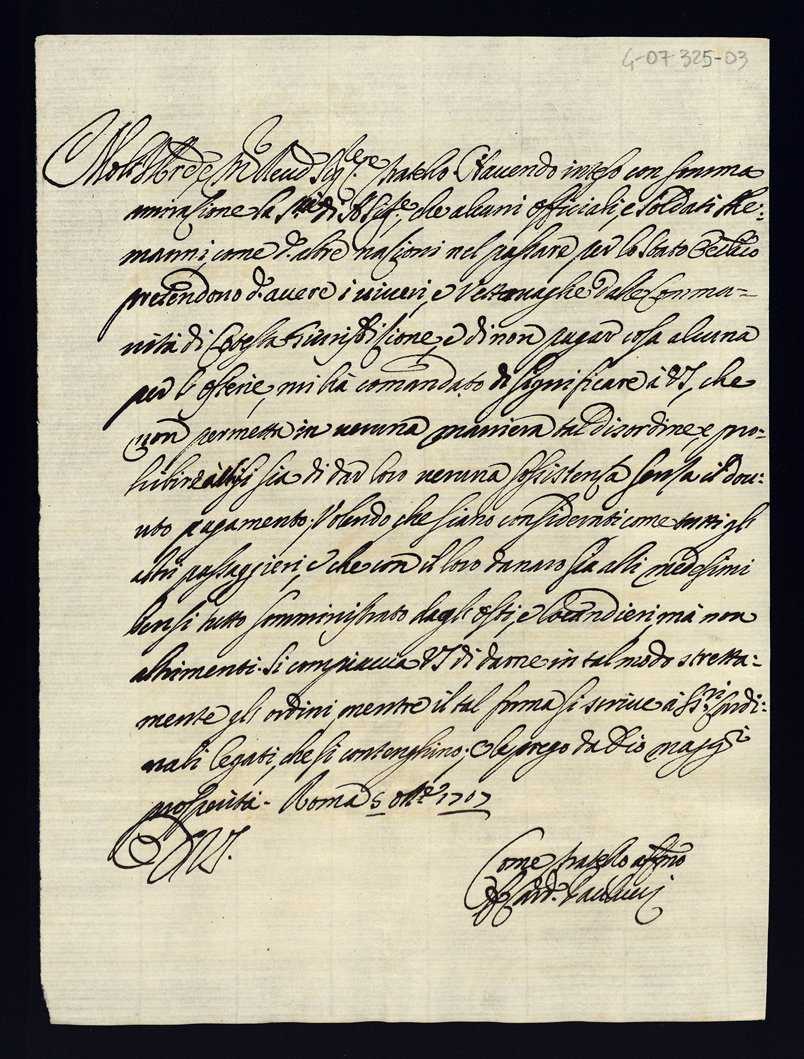 G-07-325-03
Molt' Ill.re e m.to Reud. Sig.re come fratello. Hauendo inteso con somma
amirazione la S.tà di N. Sig.re, che alcuni Officiali, e soldati Ale:
manni, come d'altre nazioni nel passare per lo Stato Eccl.co
pretendono d'auere i uiueri, e Vettouaglie dalle Commu-
nità di Cotesta Giurisdizione, e di non pagar cosa alcuna
per l'osterie, mi hà comandato di significare à VS, che
non permetta in ueruna maniera tal disordine, e pro-
hibire sia di dar loro ueruna sossistenza senza il dou:
uto pagamento, Volendo che siano considerati come tutti gli
altri passaggieri, e che con il loro danaro sia alli medesimi
bensi tutto somministrato dagl'osti, e locandieri, mà non
altrimenti. Si compiaccia VS di darne in tal modo stretta:
mente gli ordini, mentre il tal forma si scriue à SS.ri Cardi:
nali legati, che si contenghino; e le prego da Dio maggi
prosperità. Roma 5 Ott.e 1707
DVS.
Come fratello aff.mo
F. Card. Paulucci